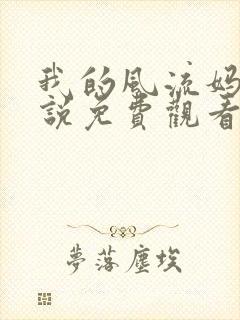 我的风流妈
說免費觀看
夢落塵埃